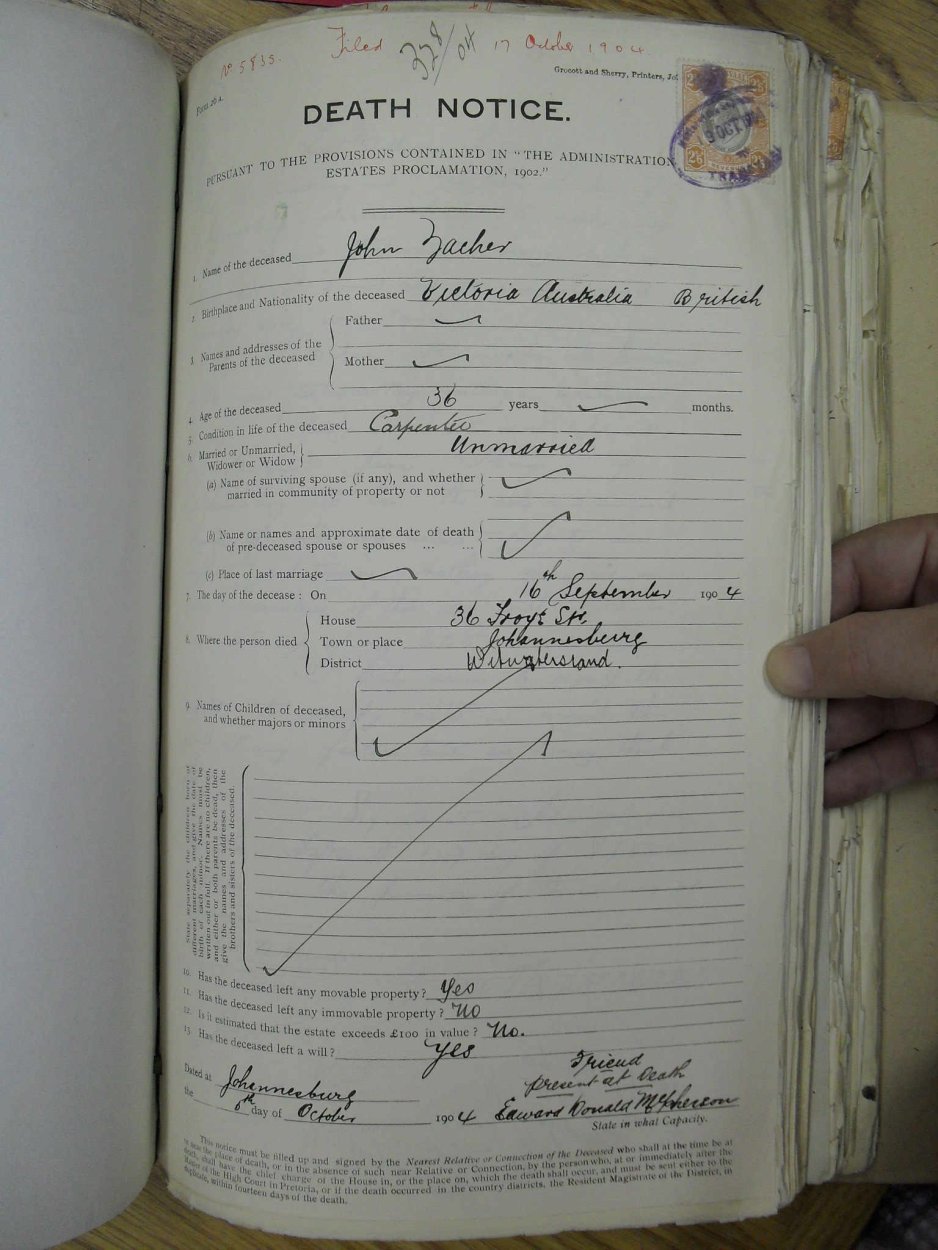 Nº 5835. Filed 17 October 1904
Form 20 A. Grocott and Sherry, Printers,
DEATH NOTICE.
PURSUANT TO THE PROVISIONS CONTAINED IN “THE ADMINISTRATION
ESTATES PROCLAMATION, 1902.”
1. Name of the deceased John Zacher
2. Birthplace and Nationality of the deceased Victoria Australia British
3. Names and addresses of the Parents of the deceased
Father
Mother
4. Age of the deceased 36 years months.
5. Condition in life of the deceased Carpenter
6. Married or Unmarried, Widower or Widow Unmarried
(a) Name of surviving spouse (if any), and whether
married in community of property or not
(b) Name or names and approximate date of death
of pre-deceased spouse or spouses ... ...
(c) Place of last marriage
7. The day of the decease : On 16th September 1904
House 36 Troye St.
8. Where the person died Town or place Johannesburg
District Witwatersrand.
9. Names of Children of deceased,
and whether majors or minors
State separately the children born of
different marriages, and give the date of
birth of each minor. Names must be
written out in full. If there are no children,
and either or both parents be dead, then
give the names and addresses of the
brothers and sisters of the deceased.
10. Has the deceased left any movable property? Yes
11. Has the deceased left any immovable property? No
12. Is it estimated that the estate exceeds £100 in value? No.
13. Has the deceased left a will? Yes
Friend
present at Death
Dated at Johannesburg
the day of October 1904 Edward Donald McPherson
State in what Capacity.
This notice must be filled up and signed by the Nearest Relative or Connection of the Deceased who shall at the time be at
or near the place of death, or in the absence of such near Relative or Connection, by the person who, at or immediately after the
death, shall have the chief charge of the House in, or the place on, which the death shall occur, and must be sent either to the
Master of the High Court in Pretoria, or if the death occurred in the country districts, the Resident Magistrate of the District, in
duplicate, within fourteen days of the death.